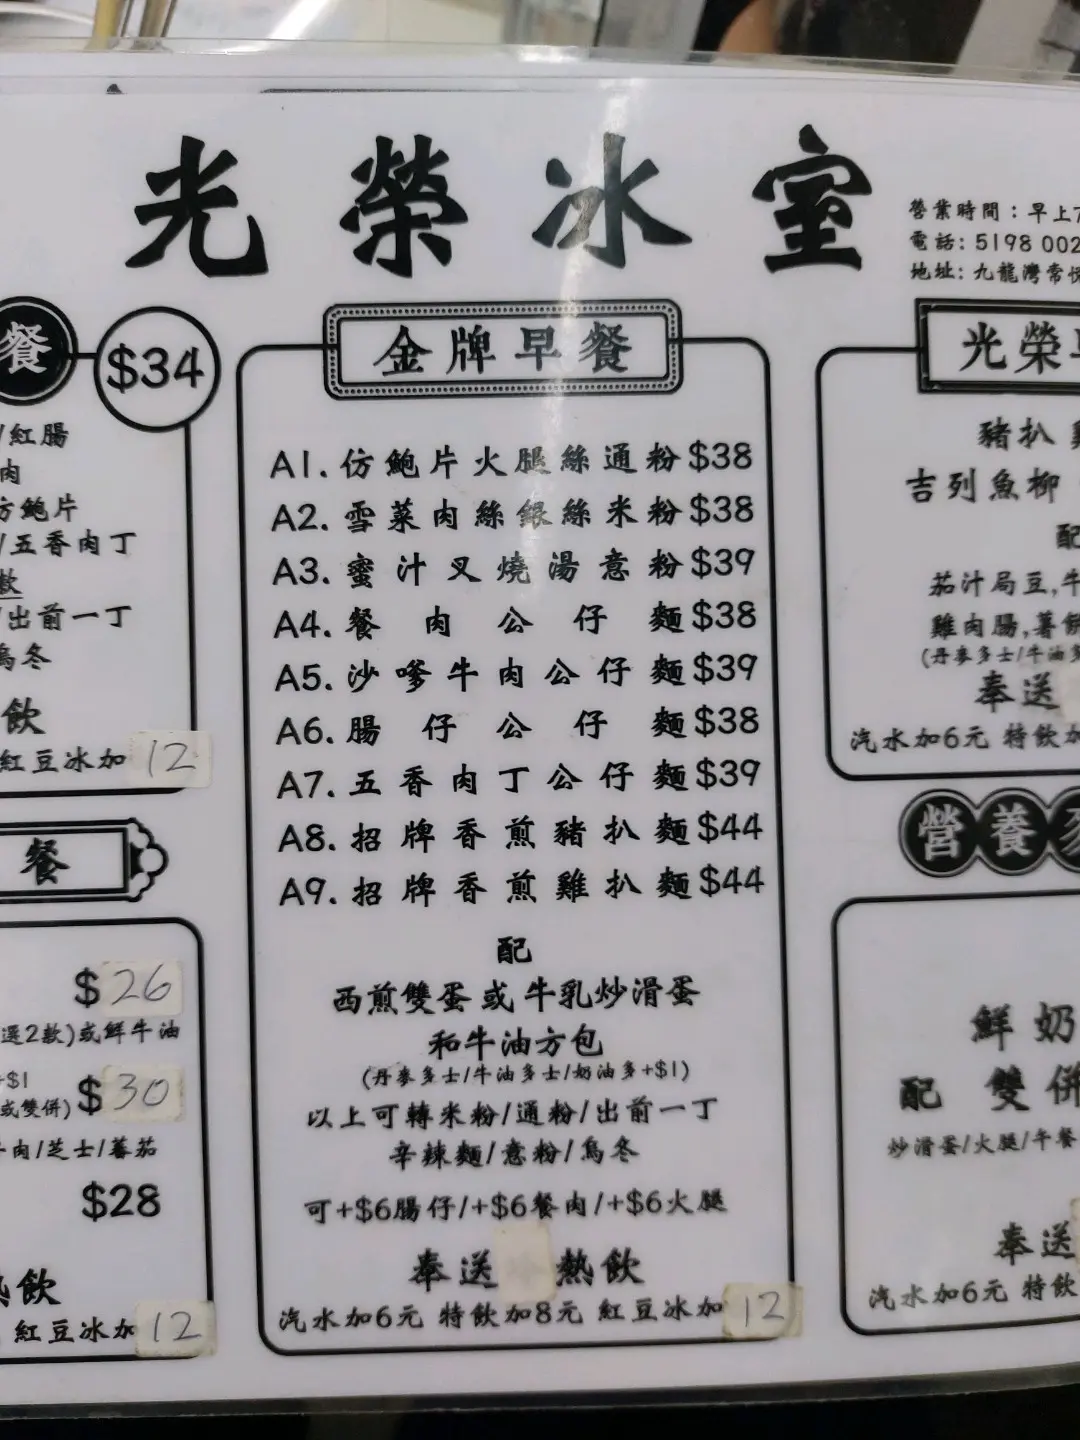 光榮冰室
營業時間：早上7
電話: 5198 002
地址: 九龍灣常悅
餐 $34
/紅腸
肉
仿鮑片
/五香肉丁
款
/出前一丁
烏冬
飲
紅豆冰加 12
餐
$26
選2款)或鮮牛油
+$1
或雙併) $30
牛肉/芝士/蕃茄
$28
熱飲
紅豆冰加 12
金牌早餐
A1. 仿鮑片火腿絲通粉 $38
A2. 雪菜肉絲銀絲米粉 $38
A3. 蜜汁叉燒湯意粉 $39
A4. 餐肉公仔麵 $38
A5. 沙嗲牛肉公仔麵 $39
A6. 腸仔公仔麵 $38
A7. 五香肉丁公仔麵 $39
A8. 招牌香煎豬扒麵 $44
A9. 招牌香煎雞扒麵 $44
配
西煎雙蛋或牛乳炒滑蛋
和牛油方包
(丹麥多士/牛油多士/奶油多+$1)
以上可轉米粉/通粉/出前一丁
辛辣麵/意粉/烏冬
可+$6腸仔/+$6餐肉/+$6火腿
奉送 熱飲
汽水加6元 特飲加8元 紅豆冰加 12
光榮早
豬扒
吉列魚柳
配
茄汁局豆,牛
雞肉腸,薯餅
(丹麥多士/牛油多
奉送
汽水加6元 特飲加
營養
鮮奶
配 雙併
炒滑蛋/火腿/午餐
奉送
汽水加6元 特飲